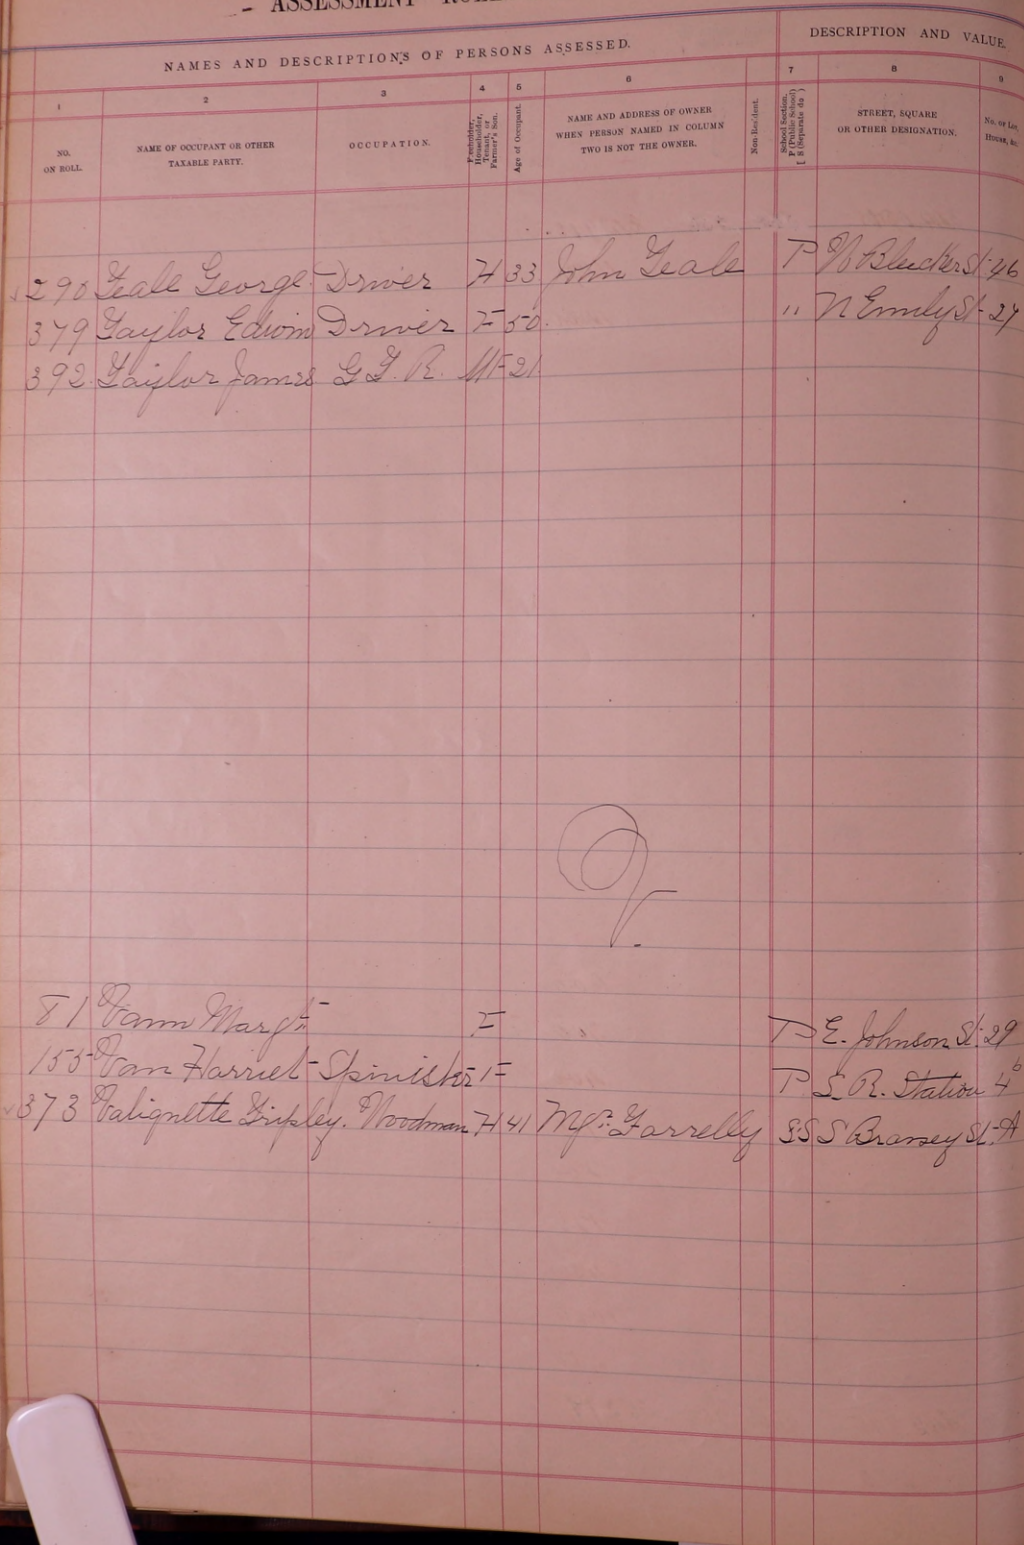 - ASSESSMENT
NAMES AND DESCRIPTIONS OF PERSONS ASSESSED.
DESCRIPTION AND VALUE
1 2 3 4 5 6 7 8 9
NO. ON ROLL.
NAME OF OCCUPANT OR OTHER TAXABLE PARTY.
OCCUPATION.
Freeholder, Householder, Tenant, or Farmer's Son.
Age of Occupant.
NAME AND ADDRESS OF OWNER WHEN PERSON NAMED IN COLUMN TWO IS NOT THE OWNER.
Non-Resident.
School Section, P (Public School) S (Separate do )
STREET, SQUARE OR OTHER DESIGNATION.
No. of Lot, House, &c.
290 Teale George Driver H 33 John Teale P N Bleecker St 46
379 Taylor Edwin Driver F 50 " N Emily St 27
392 Taylor James G.T.R. MF 21
V.
81 Vann Margt F P E. Johnson St 29
155 Van Harriet Spinister F P S. R. Station 4
373 Valignette Tripley. Woodman H 41 Mgt Farrelly SS S Brassey St. A